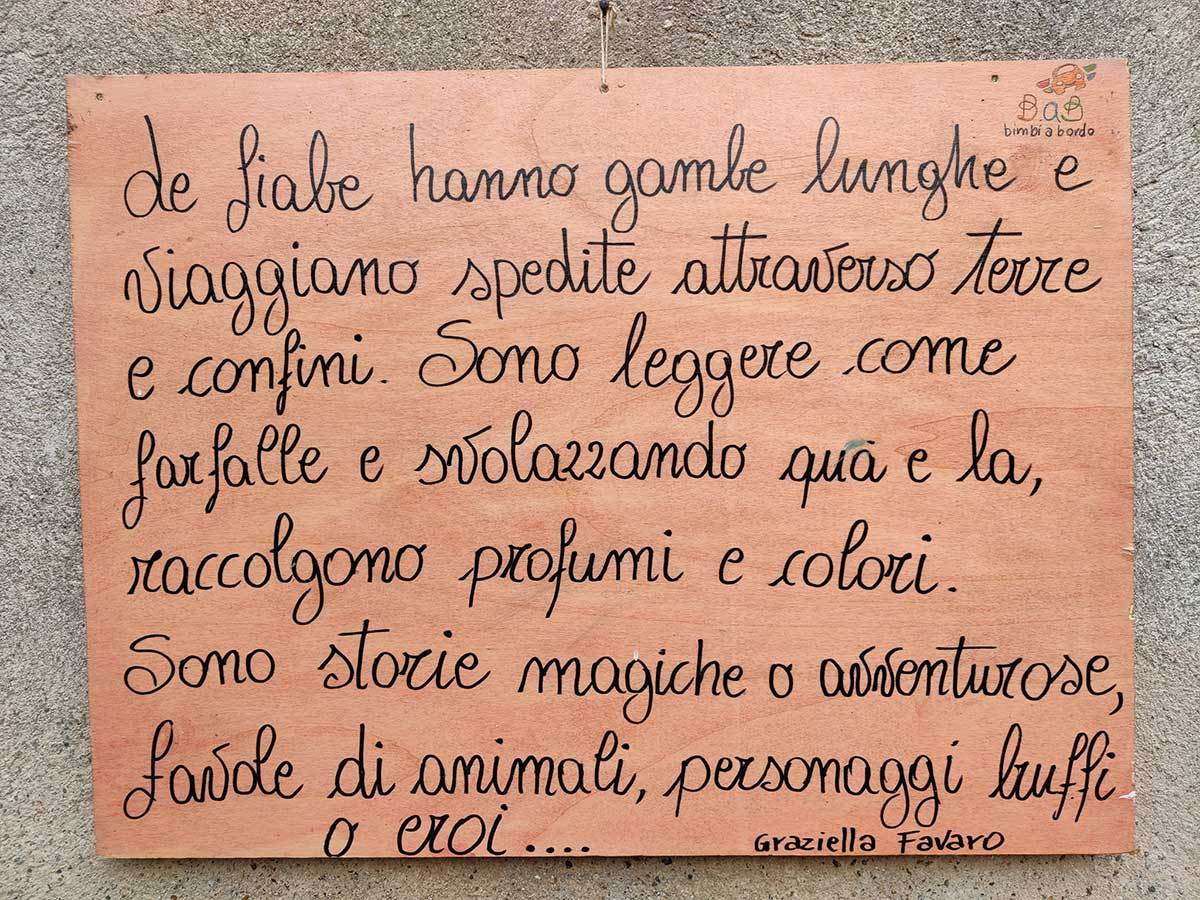 BaB
bimbi a bordo
Le fiabe hanno gambe lunghe e
viaggiano spedite attraverso terre
e confini. Sono leggere come
farfalle e svolazzando qua e la,
raccolgono profumi e colori.
Sono storie magiche o avventurose,
favole di animali, personaggi buffi
o eroi....
Graziella Favaro